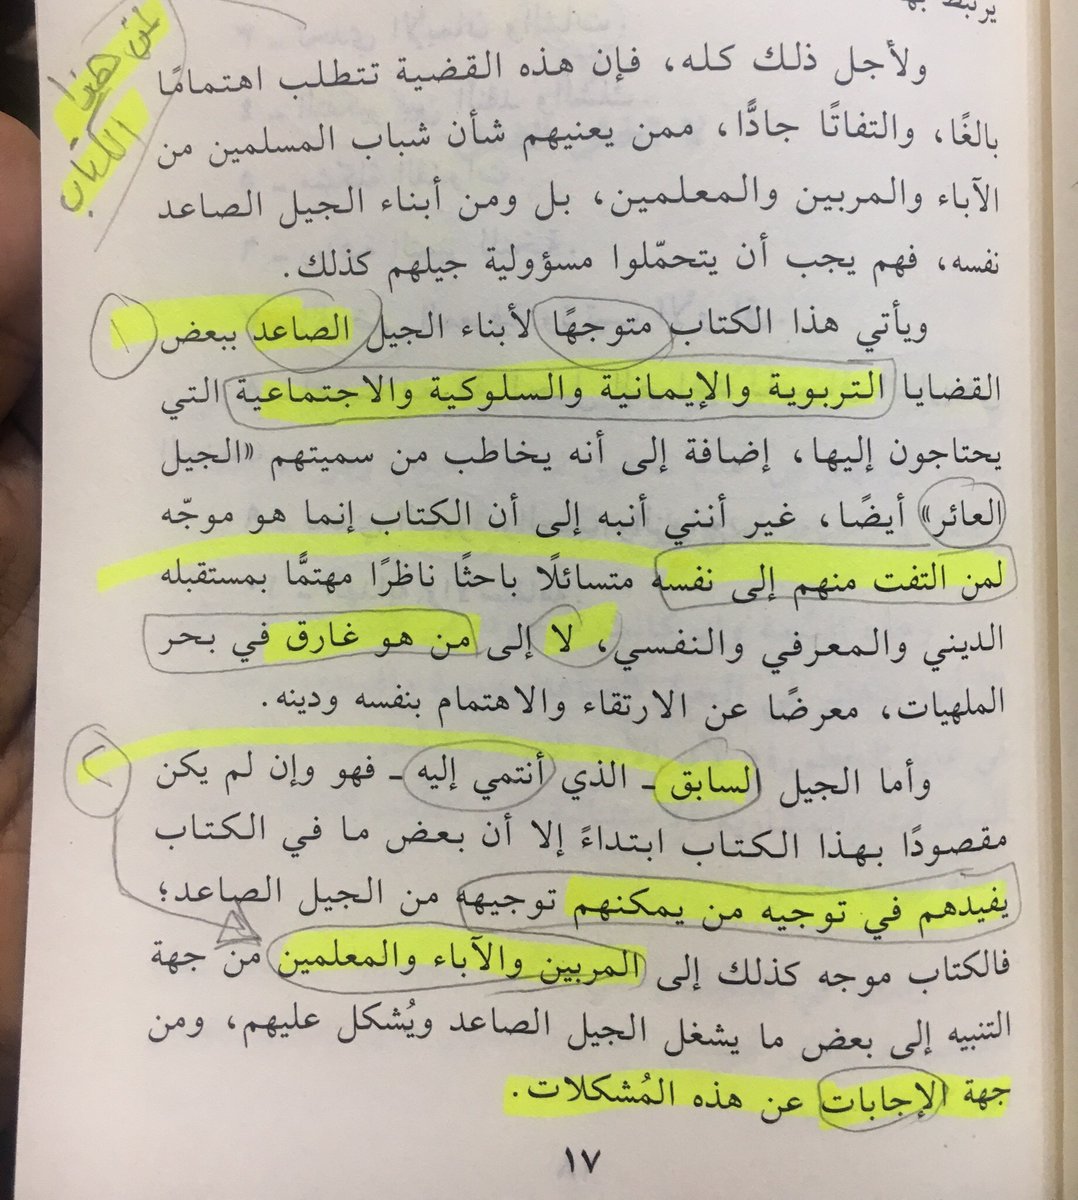 يرتبط
لمن هذا
الكتاب
ولأجل ذلك كله، فإن هذه القضية تتطلب اهتمامًا
بالغًا، والتفاتًا جادًّا، ممن يعنيهم شأن شباب المسلمين من
الآباء والمربين والمعلمين، بل ومن أبناء الجيل الصاعد
نفسه، فهم يجب أن يتحمّلوا مسؤولية جيلهم كذلك.
ويأتي هذا الكتاب متوجهًا لأبناء الجيل الصاعد ببعض
١
القضايا التربوية والإيمانية والسلوكية والاجتماعية التي
يحتاجون إليها، إضافة إلى أنه يخاطب من سميتهم «الجيل
العائر» أيضًا، غير أنني أنبه إلى أن الكتاب إنما هو موجّه
لمن التفت منهم إلى نفسه متسائلًا باحثًا ناظرًا مهتمًّا بمستقبله
الديني والمعرفي والنفسي، لا إلى من هو غارق في بحر
الملهيات، معرضًا عن الارتقاء والاهتمام بنفسه ودينه.
٢
وأما الجيل السابق ـ الذي أنتمي إليه ـ فهو وإن لم يكن
مقصودًا بهذا الكتاب ابتداءً إلا أن بعض ما في الكتاب
يفيدهم في توجيه من يمكنهم توجيهه من الجيل الصاعد؛
فالكتاب موجه كذلك إلى المربين والآباء والمعلمين من جهة
التنبيه إلى بعض ما يشغل الجيل الصاعد ويُشكل عليهم، ومن
جهة الإجابات عن هذه المُشكلات.
١٧